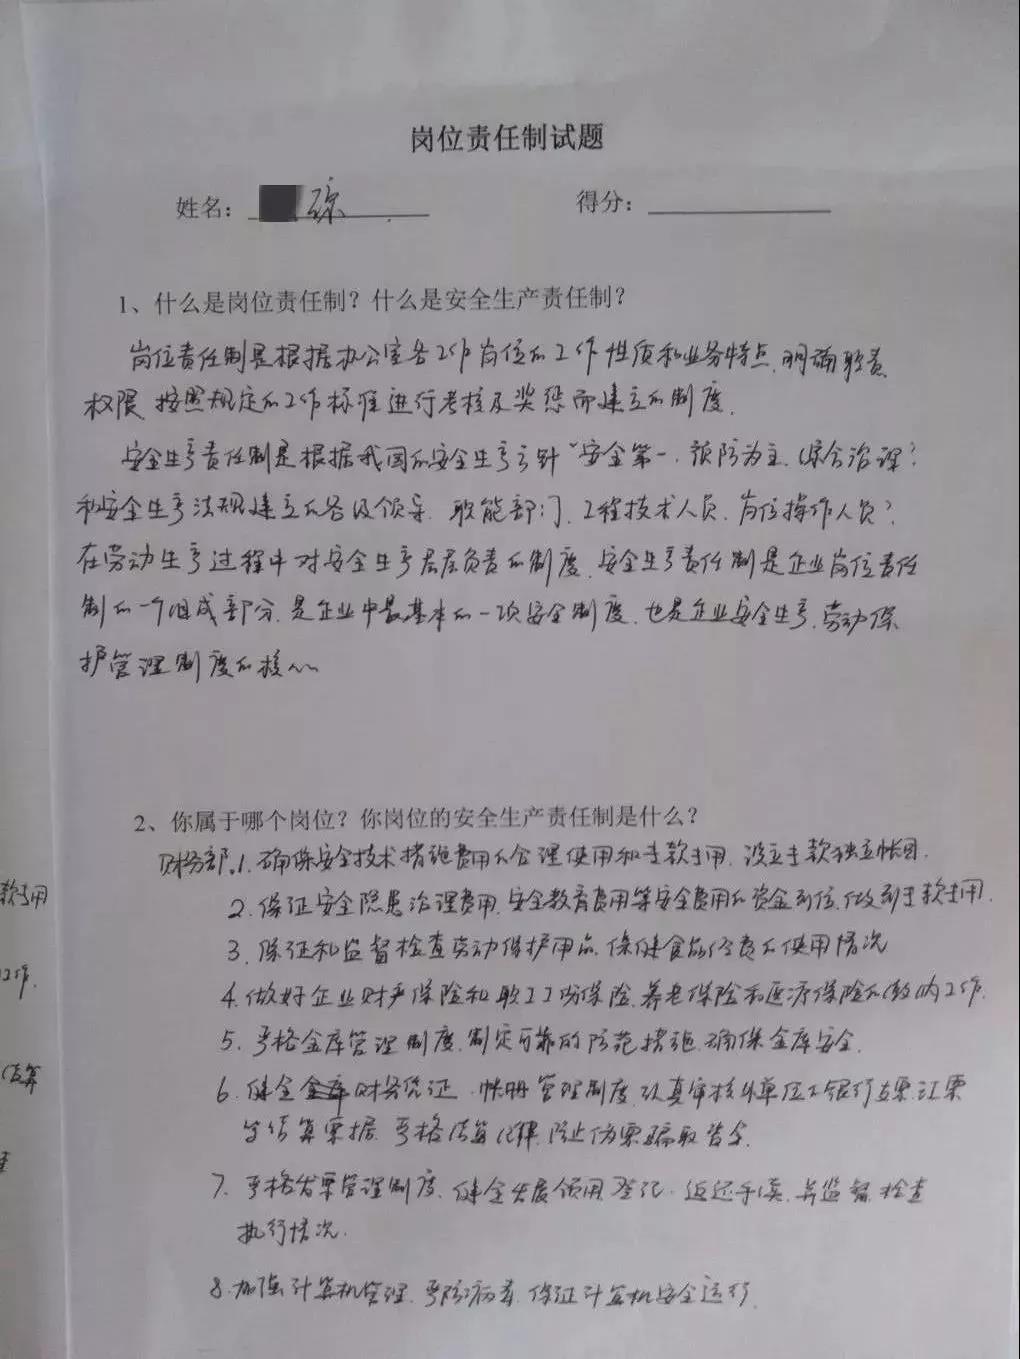 岗位责任制试题
姓名： 琼 得分：
1、什么是岗位责任制？什么是安全生产责任制？
岗位责任制是根据办公室各工作岗位的工作性质和业务特点，明确职责
权限，按照规定的工作标准进行考核及奖惩而建立的制度。
安全生产责任制是根据我国的安全生产方针“安全第一，预防为主，综合治理”
和安全生产法规建立的各级领导、职能部门、工程技术人员、岗位操作人员
在劳动生产过程中对安全生产层层负责的制度。安全生产责任制是企业岗位责任
制的一个组成部分，是企业中最基本的一项安全制度，也是企业安全生产、劳动保
护管理制度的核心
2、你属于哪个岗位？你岗位的安全生产责任制是什么？
财务部：1. 确保安全技术措施费用的合理使用和专款专用，设立专款独立帐目.
2. 保证安全隐患治理费用、安全教育费用等安全费用的资金到位，做到专款专用.
3. 保证和监督检查劳动保护用品、保健食品经费的使用情况
4. 做好企业财产保险和职工工伤保险、养老保险和医疗保险的缴纳工作.
5. 严格金库管理制度，制定可靠的防范措施，确保金库安全.
6. 健全财务凭证、帐册管理制度，认真审核外单位的银行支票、汇票
等结算票据，严格结算纪律，防止伪票骗取资金.
7. 严格发票管理制度，健全发展领用登记、返还手续，并监督、检查
执行情况.
8. 加强计算机管理，严防病毒，保证计算机安全运行.
款专用
工作.
结算